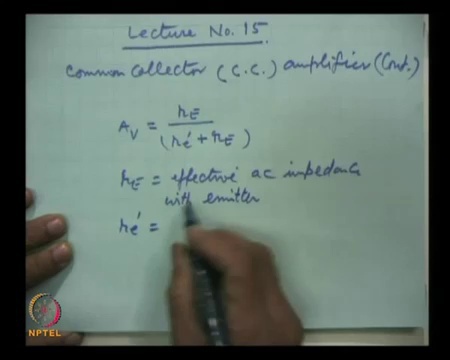 Lecture No. 15.
Common Collector (C.C.) amplifier (Cont.)
A_V = r_E / (r_e' + r_E)
r_E = effective ac impedance
with emitter
r_e' =
NPTEL